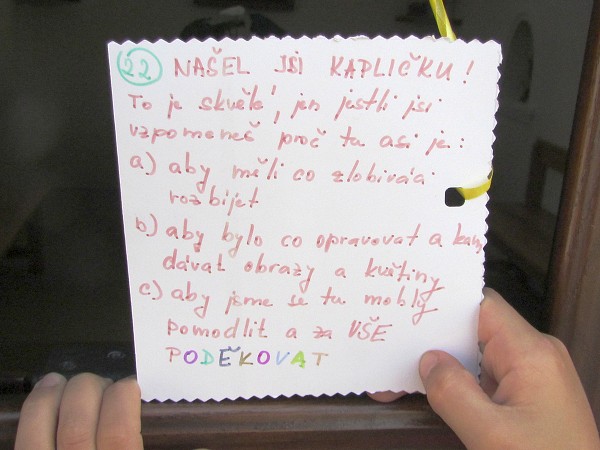 22 NAŠEL JSI KAPLIČKU!
To je skvělé, jen jestli jsi
vzpomeneš proč tu asi je:
a) aby měli co zlobiváci
rozbíjet
b) aby bylo co opravovat a kam
dávat obrazy a kuětiny
c) aby jsme se tu mohly
pomodlit a za VŠE
PODĚKOVAT